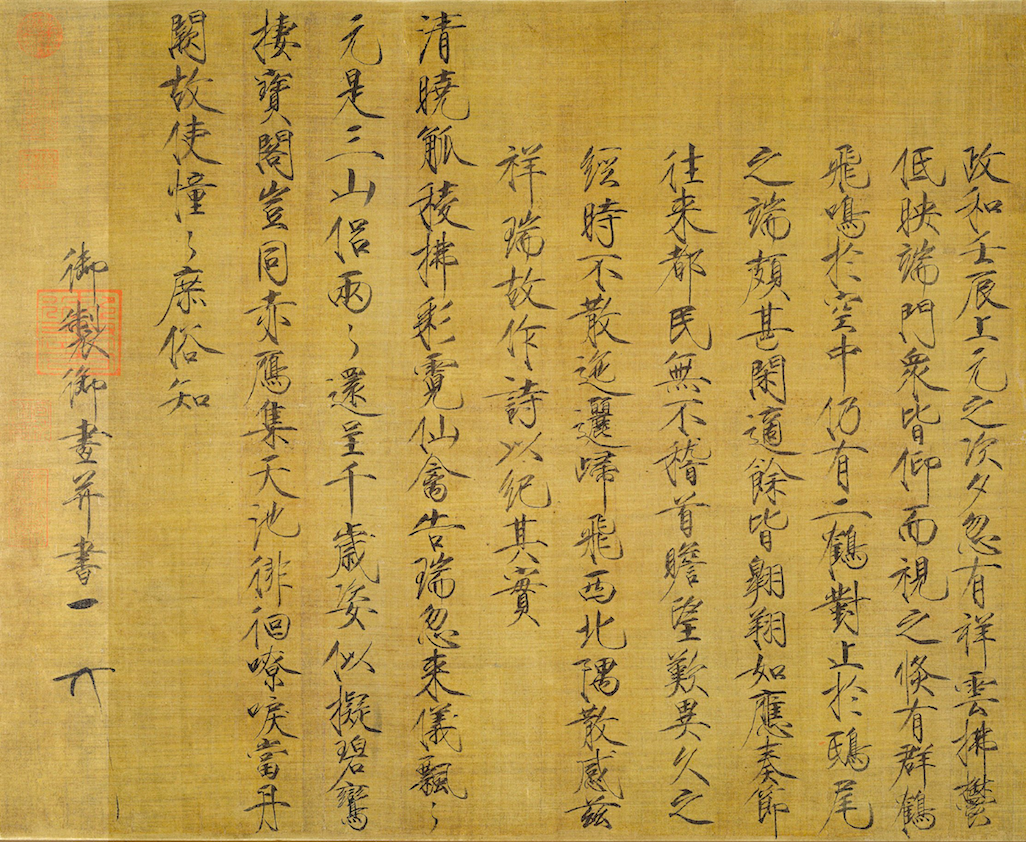 政和壬辰上元之次夕忽有祥雲拂鬱
低映端門衆皆仰而視之倐有群鶴
飛鳴於空中仍有二鶴對止於鴟尾
之端頗甚閑適餘皆翱翔如應奏節
往来都民無不稽首瞻望歎異久之
経時不散迤邐歸飛西北隅散感茲
祥瑞故作詩以紀其實
清曉觚稜拂彩霓仙禽告瑞忽来儀飄〻
元是三山侣兩〻還呈千歲姿似擬碧鸞
棲寶閣豈同赤鴈集天池徘徊嘹唳當丹
闕故使憧〻庶俗知
御製御畫并書